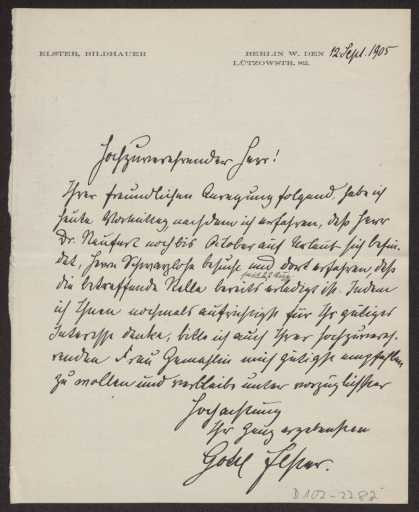 ELSTER, BILDHAUER
BERLIN W. DEN 12 Sept. 1905
LÜTZOWSTR. 82.
Hochzuverehrender Herr!
Ihrer freundlichen Anregung folgend, habe ich
heute Vormittag, nachdem ich erfahren, daß Herr
Dr. Neufert noch bis Oktober auf Urlaub sich befin-
det, Herrn Schwarzlose besucht und dort erfahren, daß
seit 22 Aug
die betreffende Stelle bereits erledigt ist. Indem
ich Ihnen nochmals aufrichtigst für Ihr gütiges
Interesse danke, bitte ich auch Ihrer hochzuverehr-
renden Frau Gemahlin mich gütigst empfehlen
zu wollen und verbleibe unter vorzüglichster
Hochachtung
Ihr ganz ergebenster
Gottl. Elster.
D 102-2282